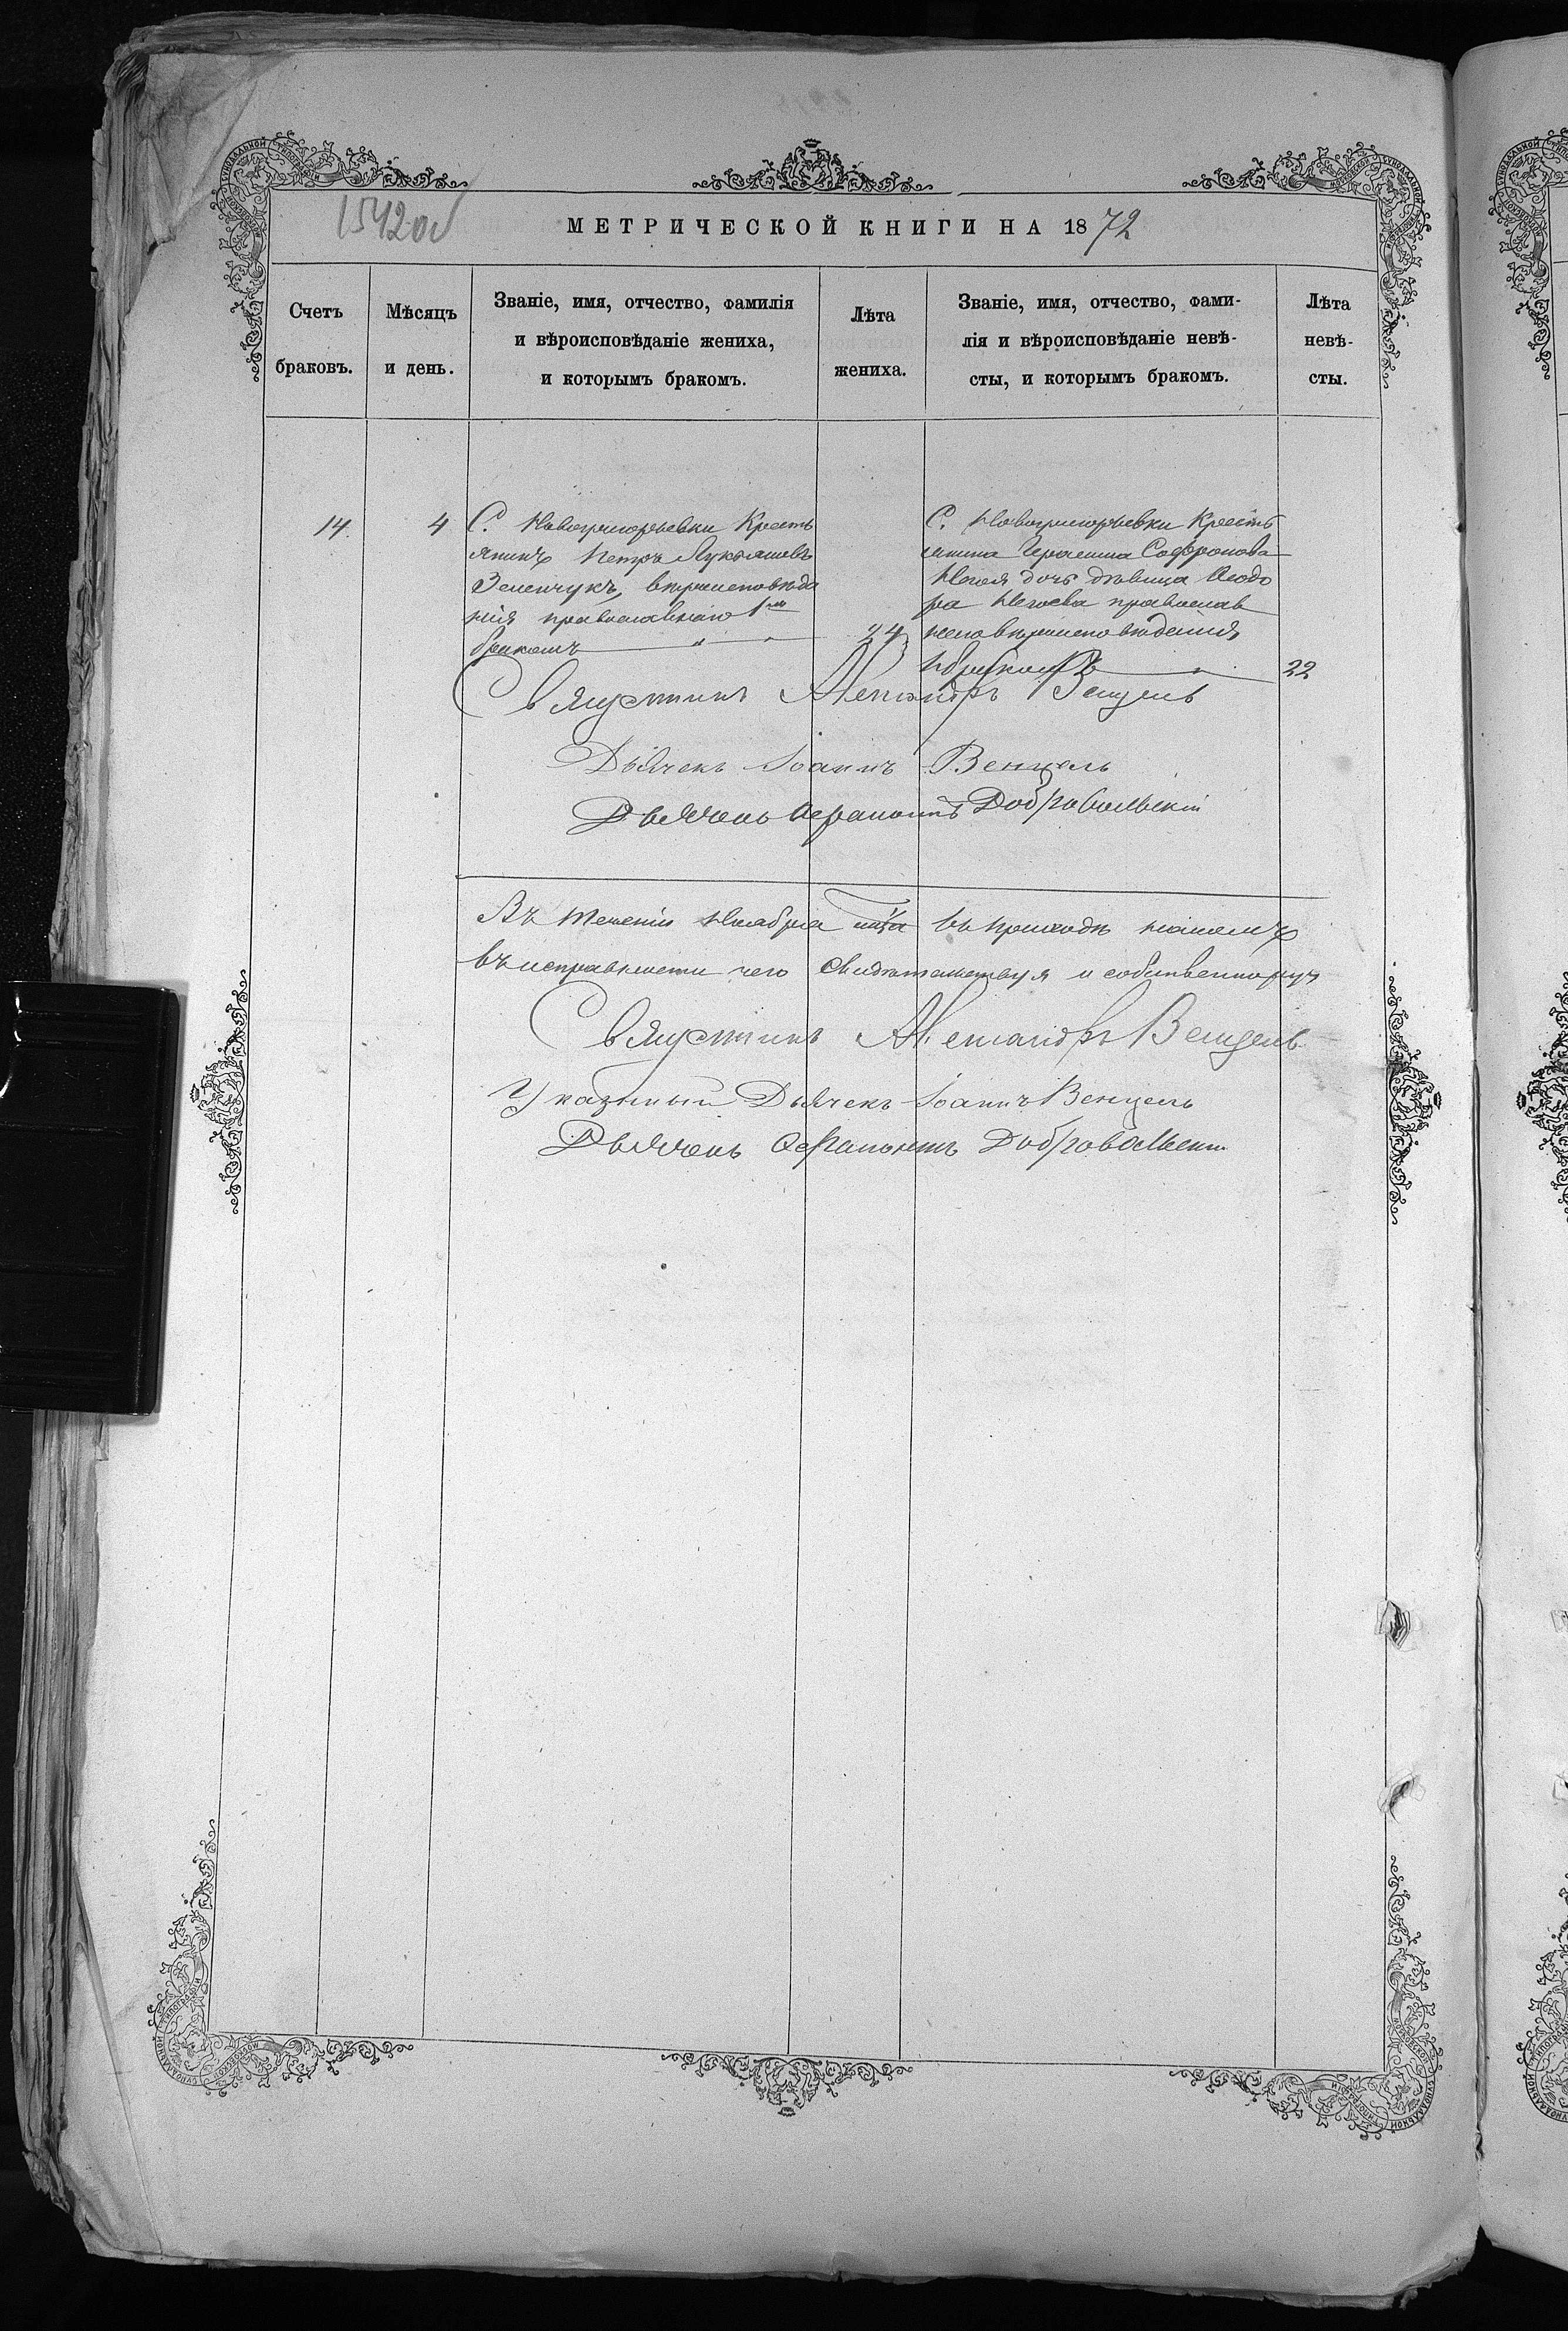 1542об
МЕТРИЧЕСКОЙ КНИГИ НА 1872
Счетъ браковъ.
Мѣсяцъ и день.
Званіе, имя, отчество, фамилія
и вѣроисповѣданіе жениха,
и которымъ бракомъ.
Лѣта жениха.
Званіе, имя, отчество, фами-
лія и вѣроисповѣданіе невѣ-
сты, и которымъ бракомъ.
Лѣта невѣ-
сты.
14
4
С. Новогригорьевки Кресть
янинъ Петръ Лукьяновъ
Зеленчукъ, вѣроисповѣда
нія православнаго 1мъ
бракомъ
24
С. Новогригорьевки Кресть
янина Герасима Софронова
дочь дѣвица Ѳеодо
ра православ
наго вѣроисповѣданія
1 бракомъ
22
Священникъ Александръ Венцель
Дьячекъ Іоаннъ Венцель
Дьячекъ Ѳерапонтъ Добровольскій
Въ теченіи Ноября въ приходѣ нашемъ
въ исправности чего свидѣтельствуя и собственноруч
Священникъ Александръ Венцель
Указный Дьячекъ Іоаннъ Венцель
Дьячекъ Ѳерапонтъ Добровольскій